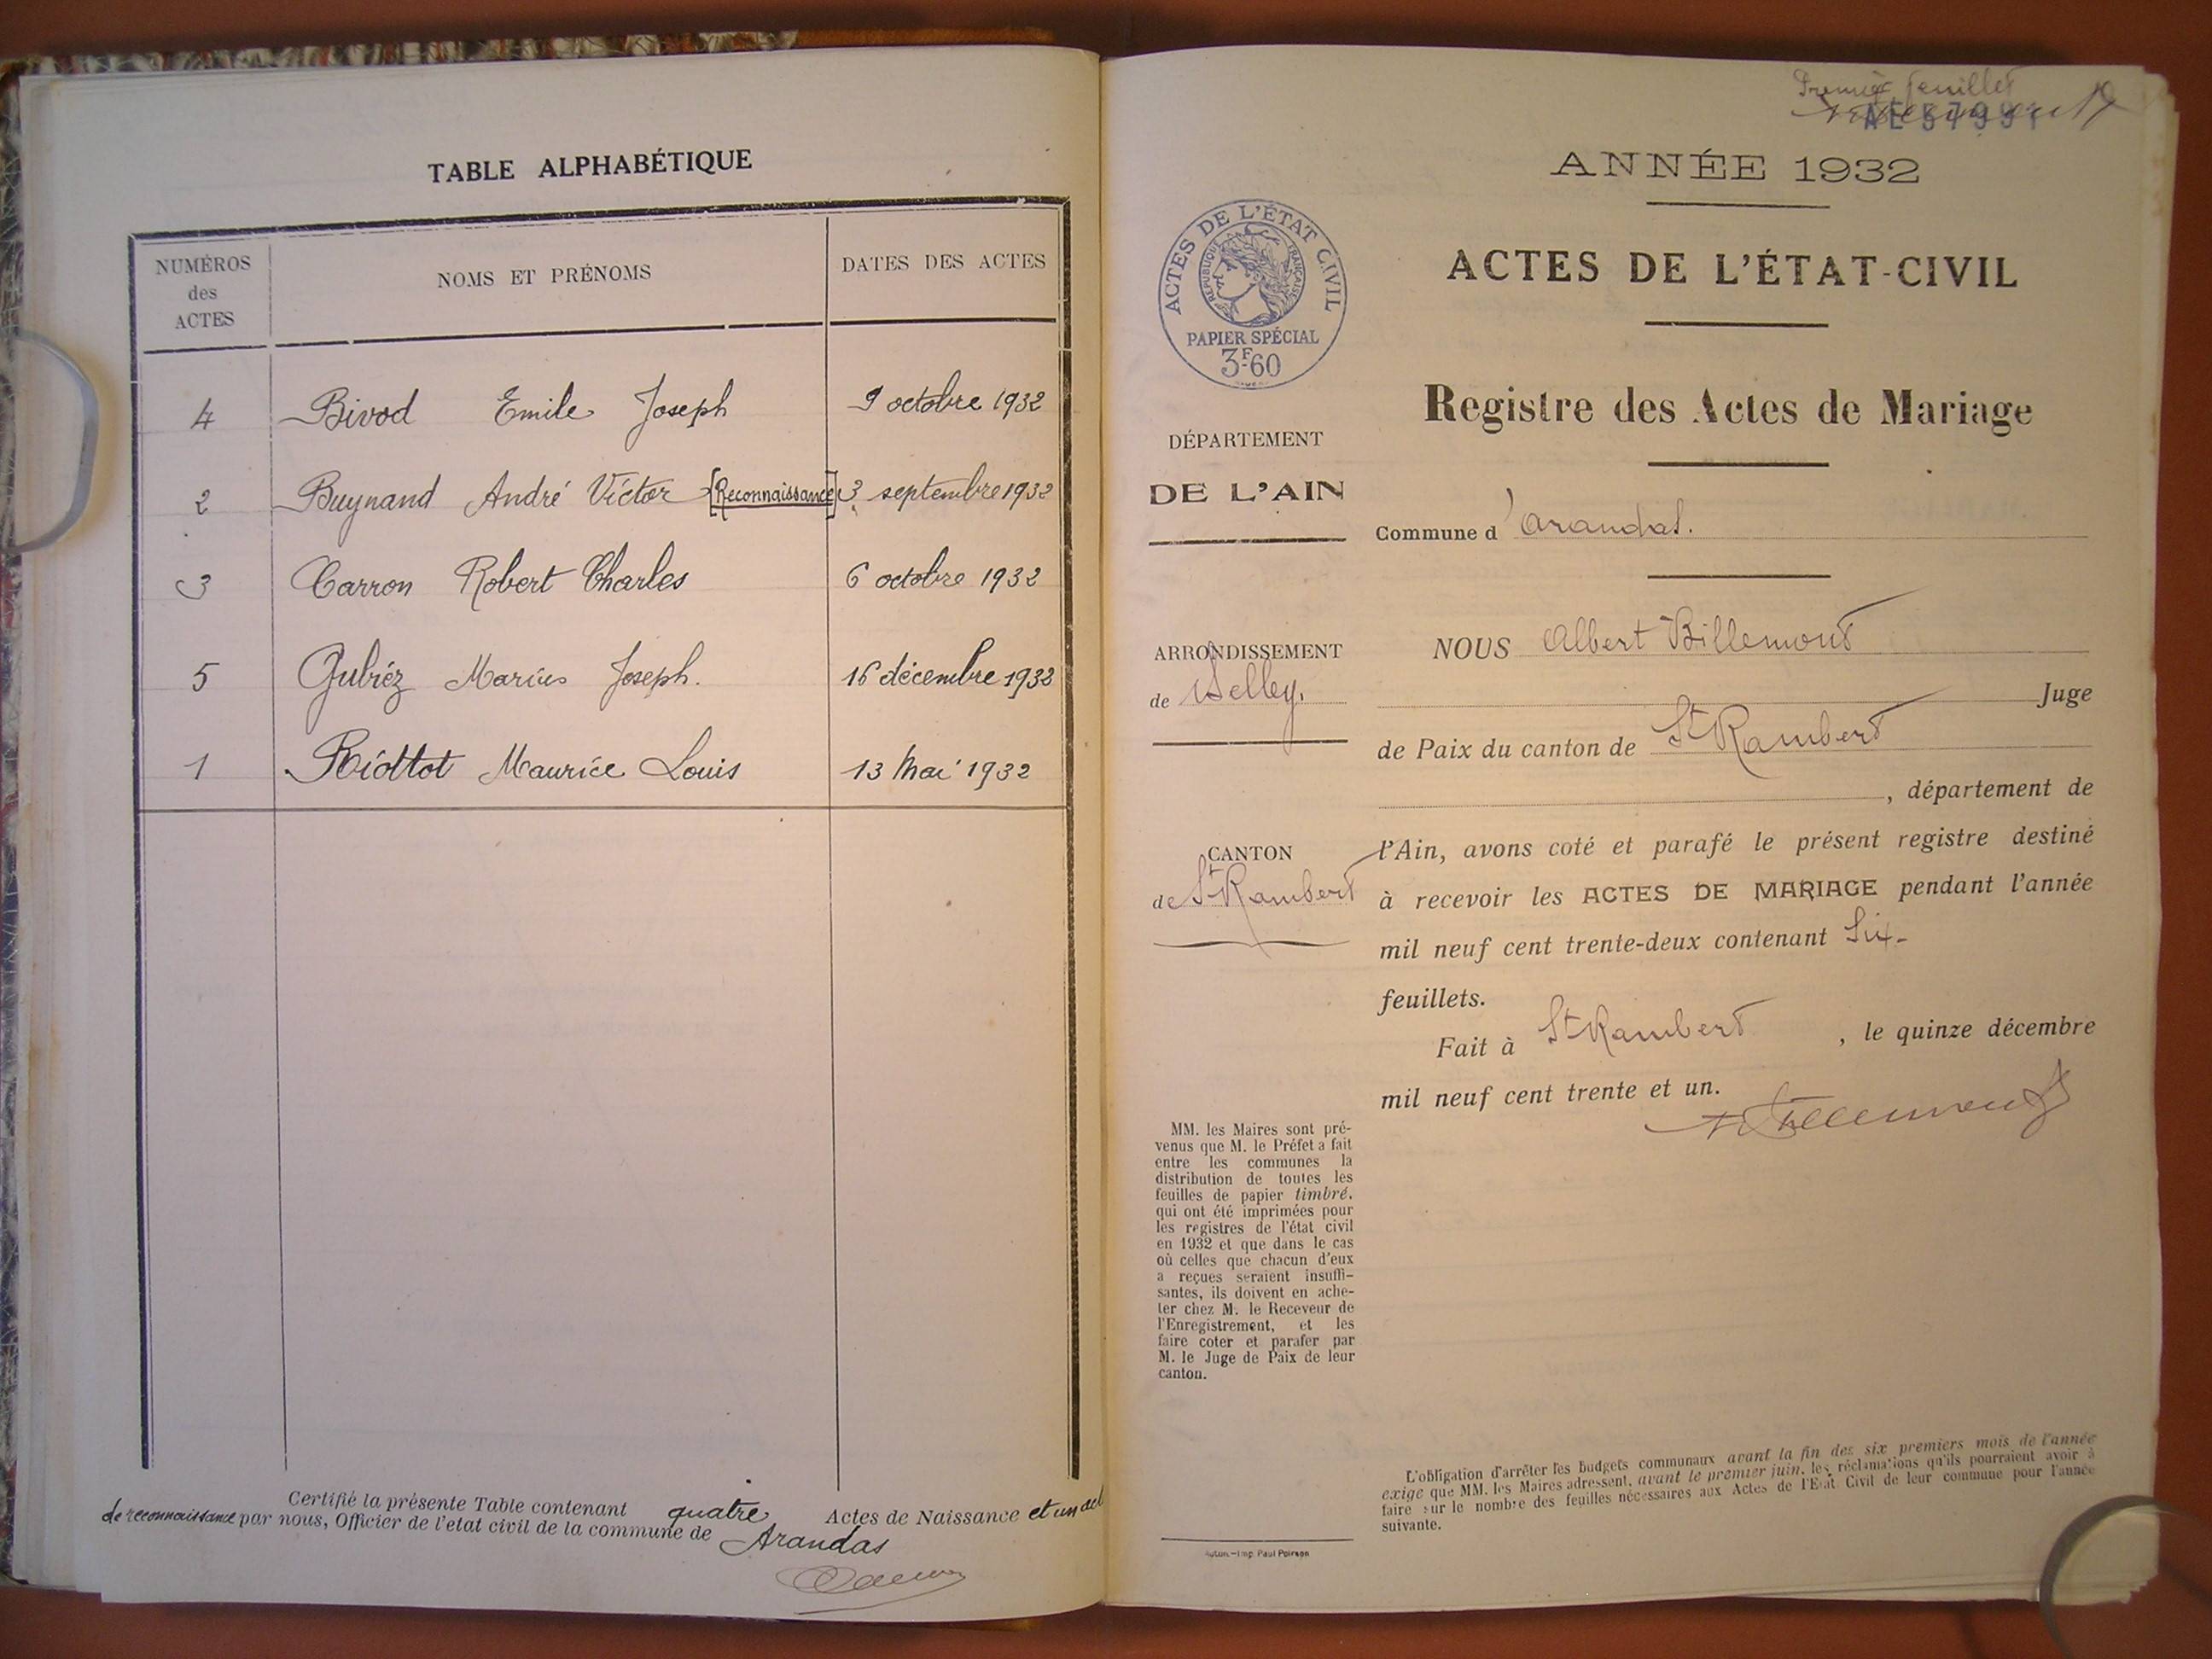 TABLE ALPHABÉTIQUE
NUMÉROS
des
ACTES
NOMS ET PRÉNOMS
DATES DES ACTES
4 Bivod Emile Joseph 9 octobre 1932
2 Buynand André Victor [Reconnaissance] 3 septembre 1932
3 Carron Robert Charles 6 octobre 1932
5 Gubiéz Marius Joseph. 16 décembre 1932
1 Riottot Maurice Louis 13 Mai 1932
Certifié la présente Table contenant quatre Actes de Naissance et un act
de reconnaissance par nous, Officier de l'etat civil de la commune de Arandas
Premier feuillet
ANNÉE 1932
ACTES DE L'ÉTAT CIVIL
RÉPUBLIQUE FRANÇAISE
PAPIER SPÉCIAL
3F60
ACTES DE L'ÉTAT-CIVIL
Registre des Actes de Mariage
DÉPARTEMENT
DE L'AIN
Commune d'Arandas.
ARRONDISSEMENT
de Belley.
NOUS Albert Billemont
Juge
de Paix du canton de St Rambert
, département de
CANTON
de St Rambert
l'Ain, avons coté et parafé le présent registre destiné
à recevoir les ACTES DE MARIAGE pendant l'année
mil neuf cent trente-deux contenant Six-
feuillets.
Fait à St Rambert , le quinze décembre
mil neuf cent trente et un.
MM. les Maires sont pré-
venus que M. le Préfet a fait
entre les communes la
distribution de toutes les
feuilles de papier timbré.
qui ont été imprimées pour
les registres de l'état civil
en 1932 et que dans le cas
où celles que chacun d'eux
a reçues seraient insuffi-
santes, ils doivent en ache-
ter chez M. le Receveur de
l'Enregistrement, et les
faire coter et parafer par
M. le Juge de Paix de leur
canton.
L'obligation d'arrêter les budgets communaux avant la fin des six premiers mois de l'année
exige que MM. les Maires adressent, avant le premier juin, les réclamations qu'ils pourraient avoir à
faire sur le nombre des feuilles nécessaires aux Actes de l'Etat Civil de leur commune pour l'année
suivante.
Imp. Paul Poirson